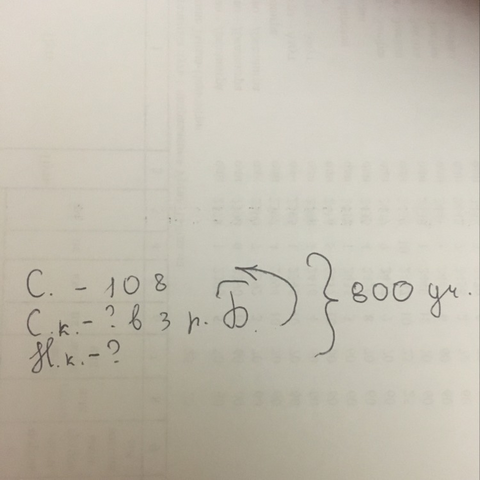 С. - 108
С.к. - ? в 3 р. Б.
Н.к. - ?
} 800 уч.